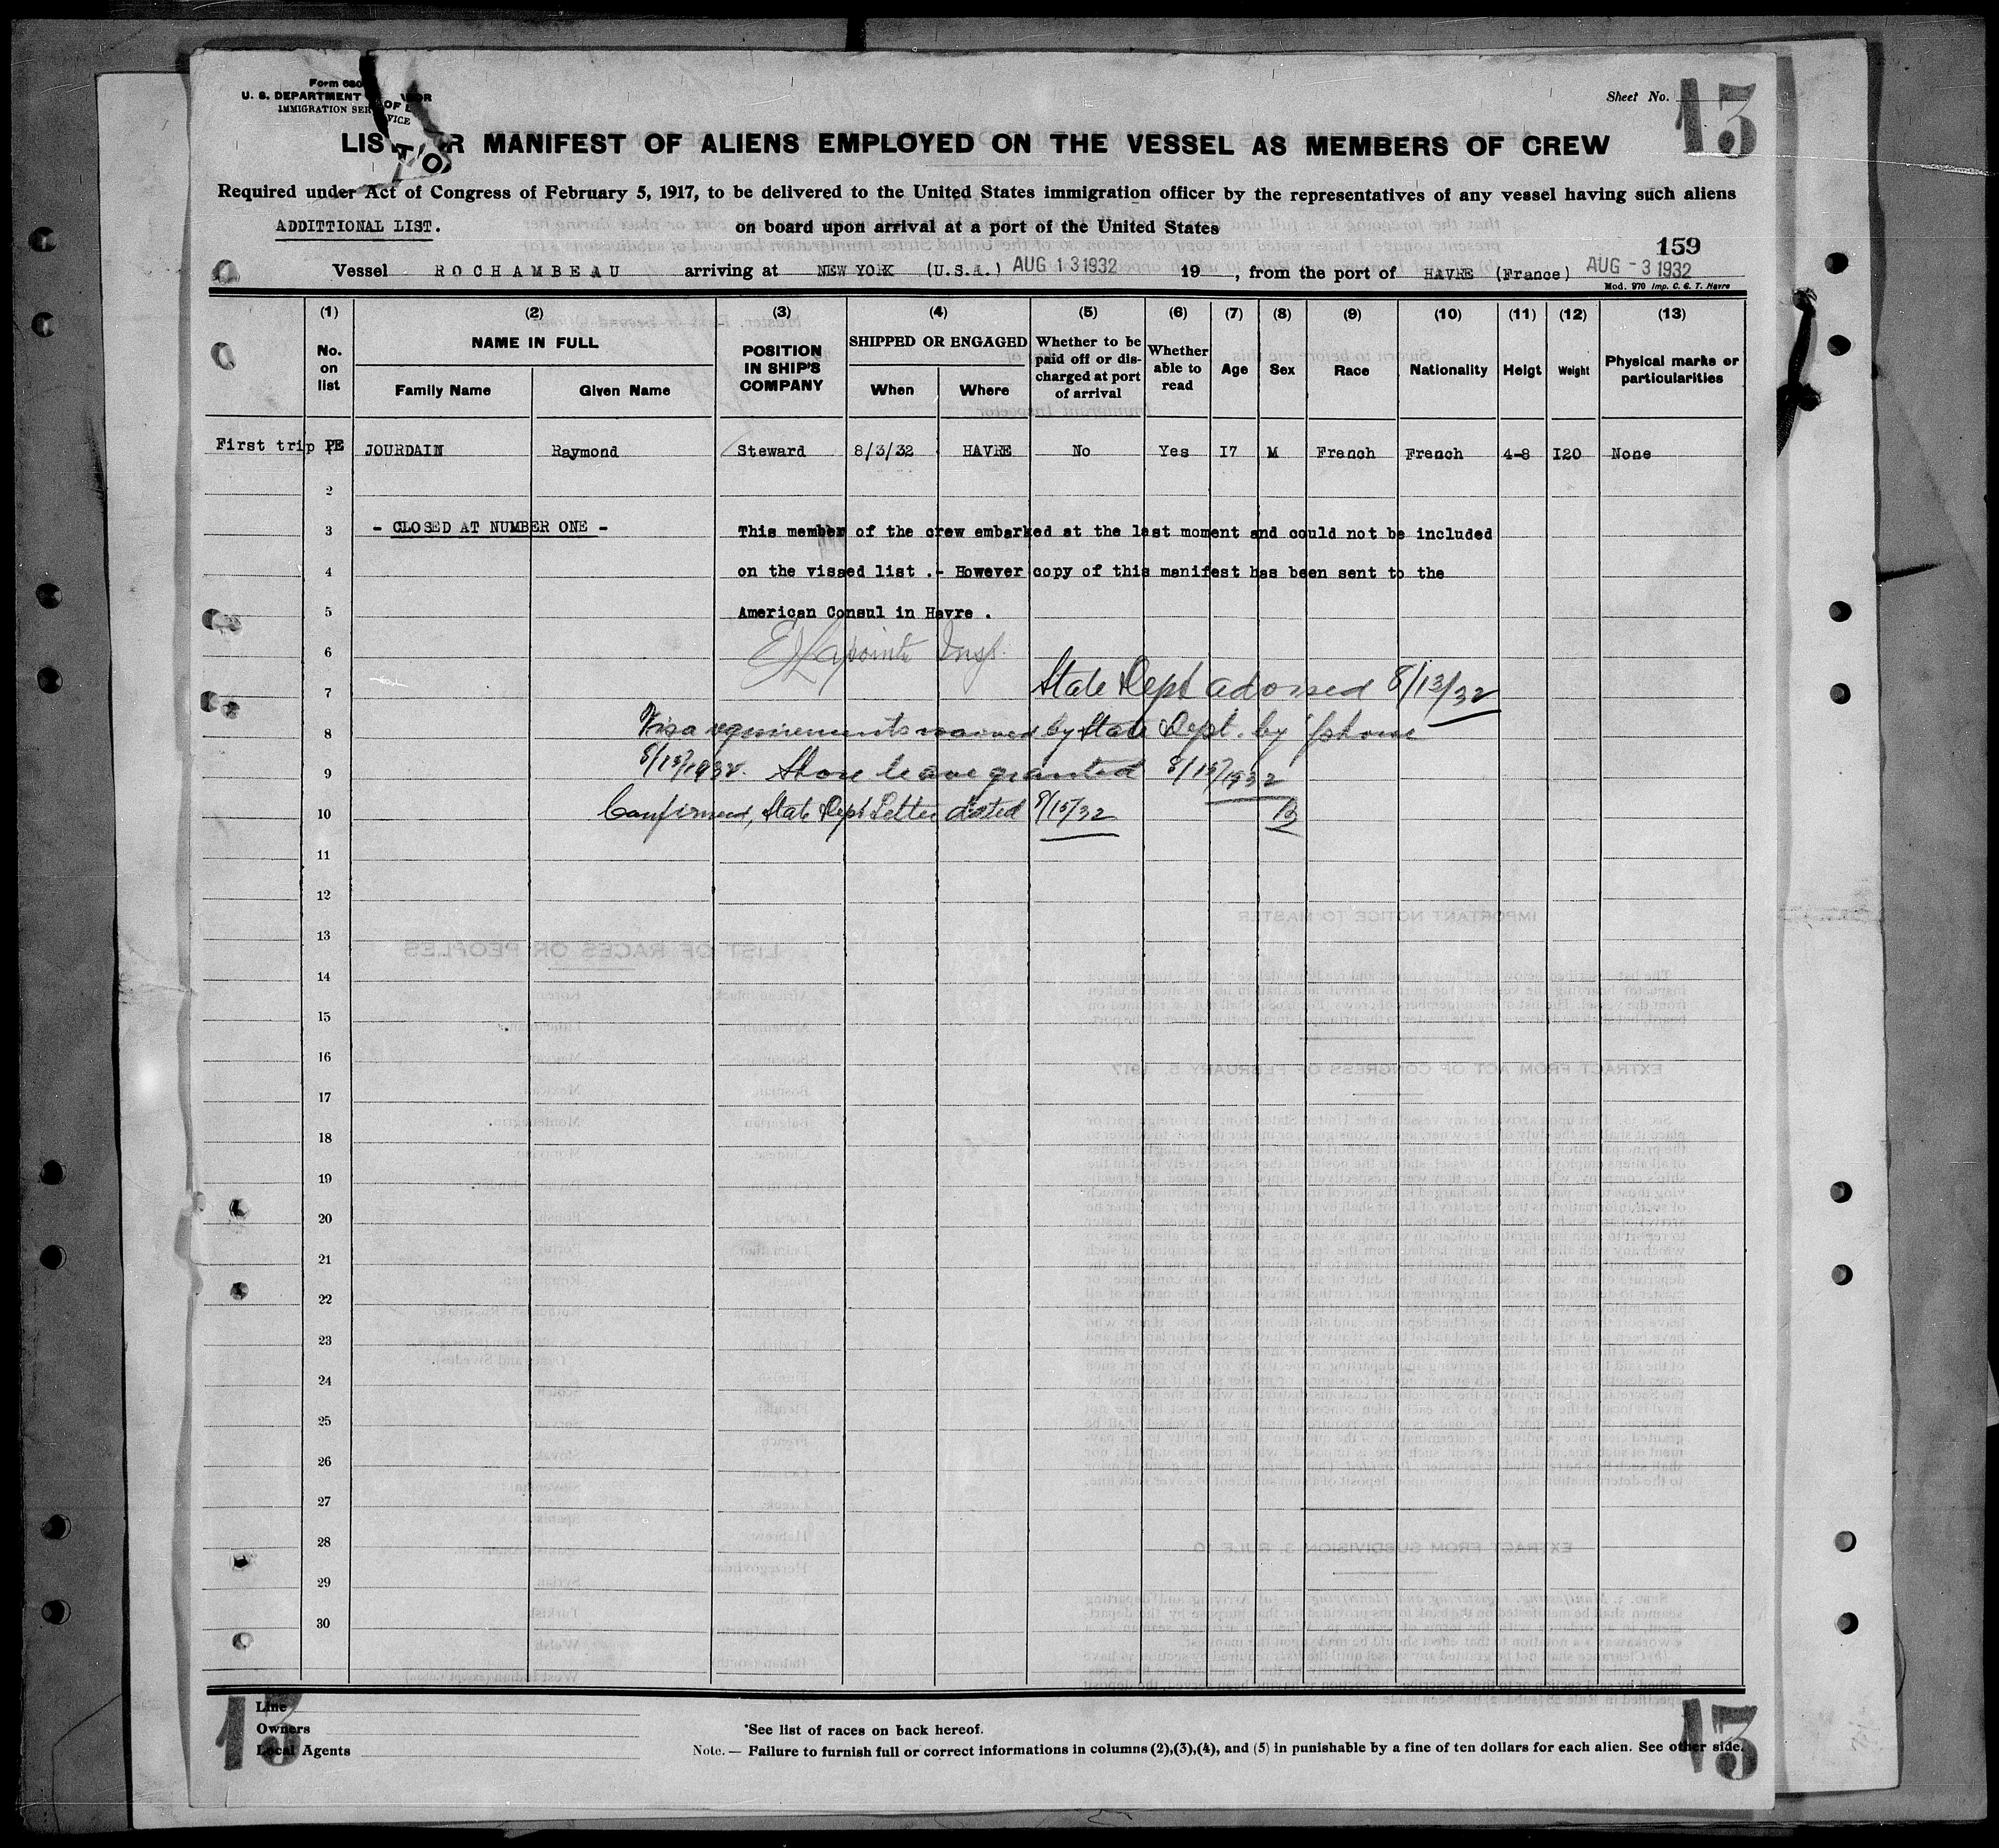 Form 680
U. S. DEPARTMENT OF LABOR
IMMIGRATION SERVICE
Sheet No. 13
LIST OR MANIFEST OF ALIENS EMPLOYED ON THE VESSEL AS MEMBERS OF CREW
Required under Act of Congress of February 5, 1917, to be delivered to the United States immigration officer by the representatives of any vessel having such aliens
ADDITTIONAL LIST. on board upon arrival at a port of the United States
159
Vessel ROCHAMBEAU arriving at NEW YORK (U.S.A.) AUG 13 1932 19 , from the port of HAVRE (France) AUG -3 1932
Mod. 970 Imp. C. G. T. Havre
(1) (2) (3) (4) (5) (6) (7) (8) (9) (10) (11) (12) (13)
No. on list NAME IN FULL Family Name Given Name POSITION IN SHIP'S COMPANY SHIPPED OR ENGAGED When Where Whether to be paid off or discharged at port of arrival Whether able to read Age Sex Race Nationality Helgt Weight Physical marks or particularities
First trip PE JOURDAIN Raymond Steward 8/3/32 HAVRE No Yes I7 M French French 4-8 I20 None
2
3 - CLOSED AT NUMBER ONE - This member of the crew embarked at the last moment and could not be included
4 on the vissed list .- However copy of this manifest has been sent to the
5 American Consul in Havre .
6 Lapointe Insp.
7 State Dept advised 8/13/32
8 Visa requirements waived by State Dept. by 'phone
9 8/13/1932. Shore leave granted 8/13/1932
10 Confirmed, State Dept Letter dated 8/15/32
11
12
13
14
15
16
17
18
19
20
21
22
23
24
25
26
27
28
29
30
13
Line
Owners
Local Agents
*See list of races on back hereof.
Note. — Failure to furnish full or correct informations in columns (2),(3),(4), and (5) in punishable by a fine of ten dollars for each alien. See other side.
13